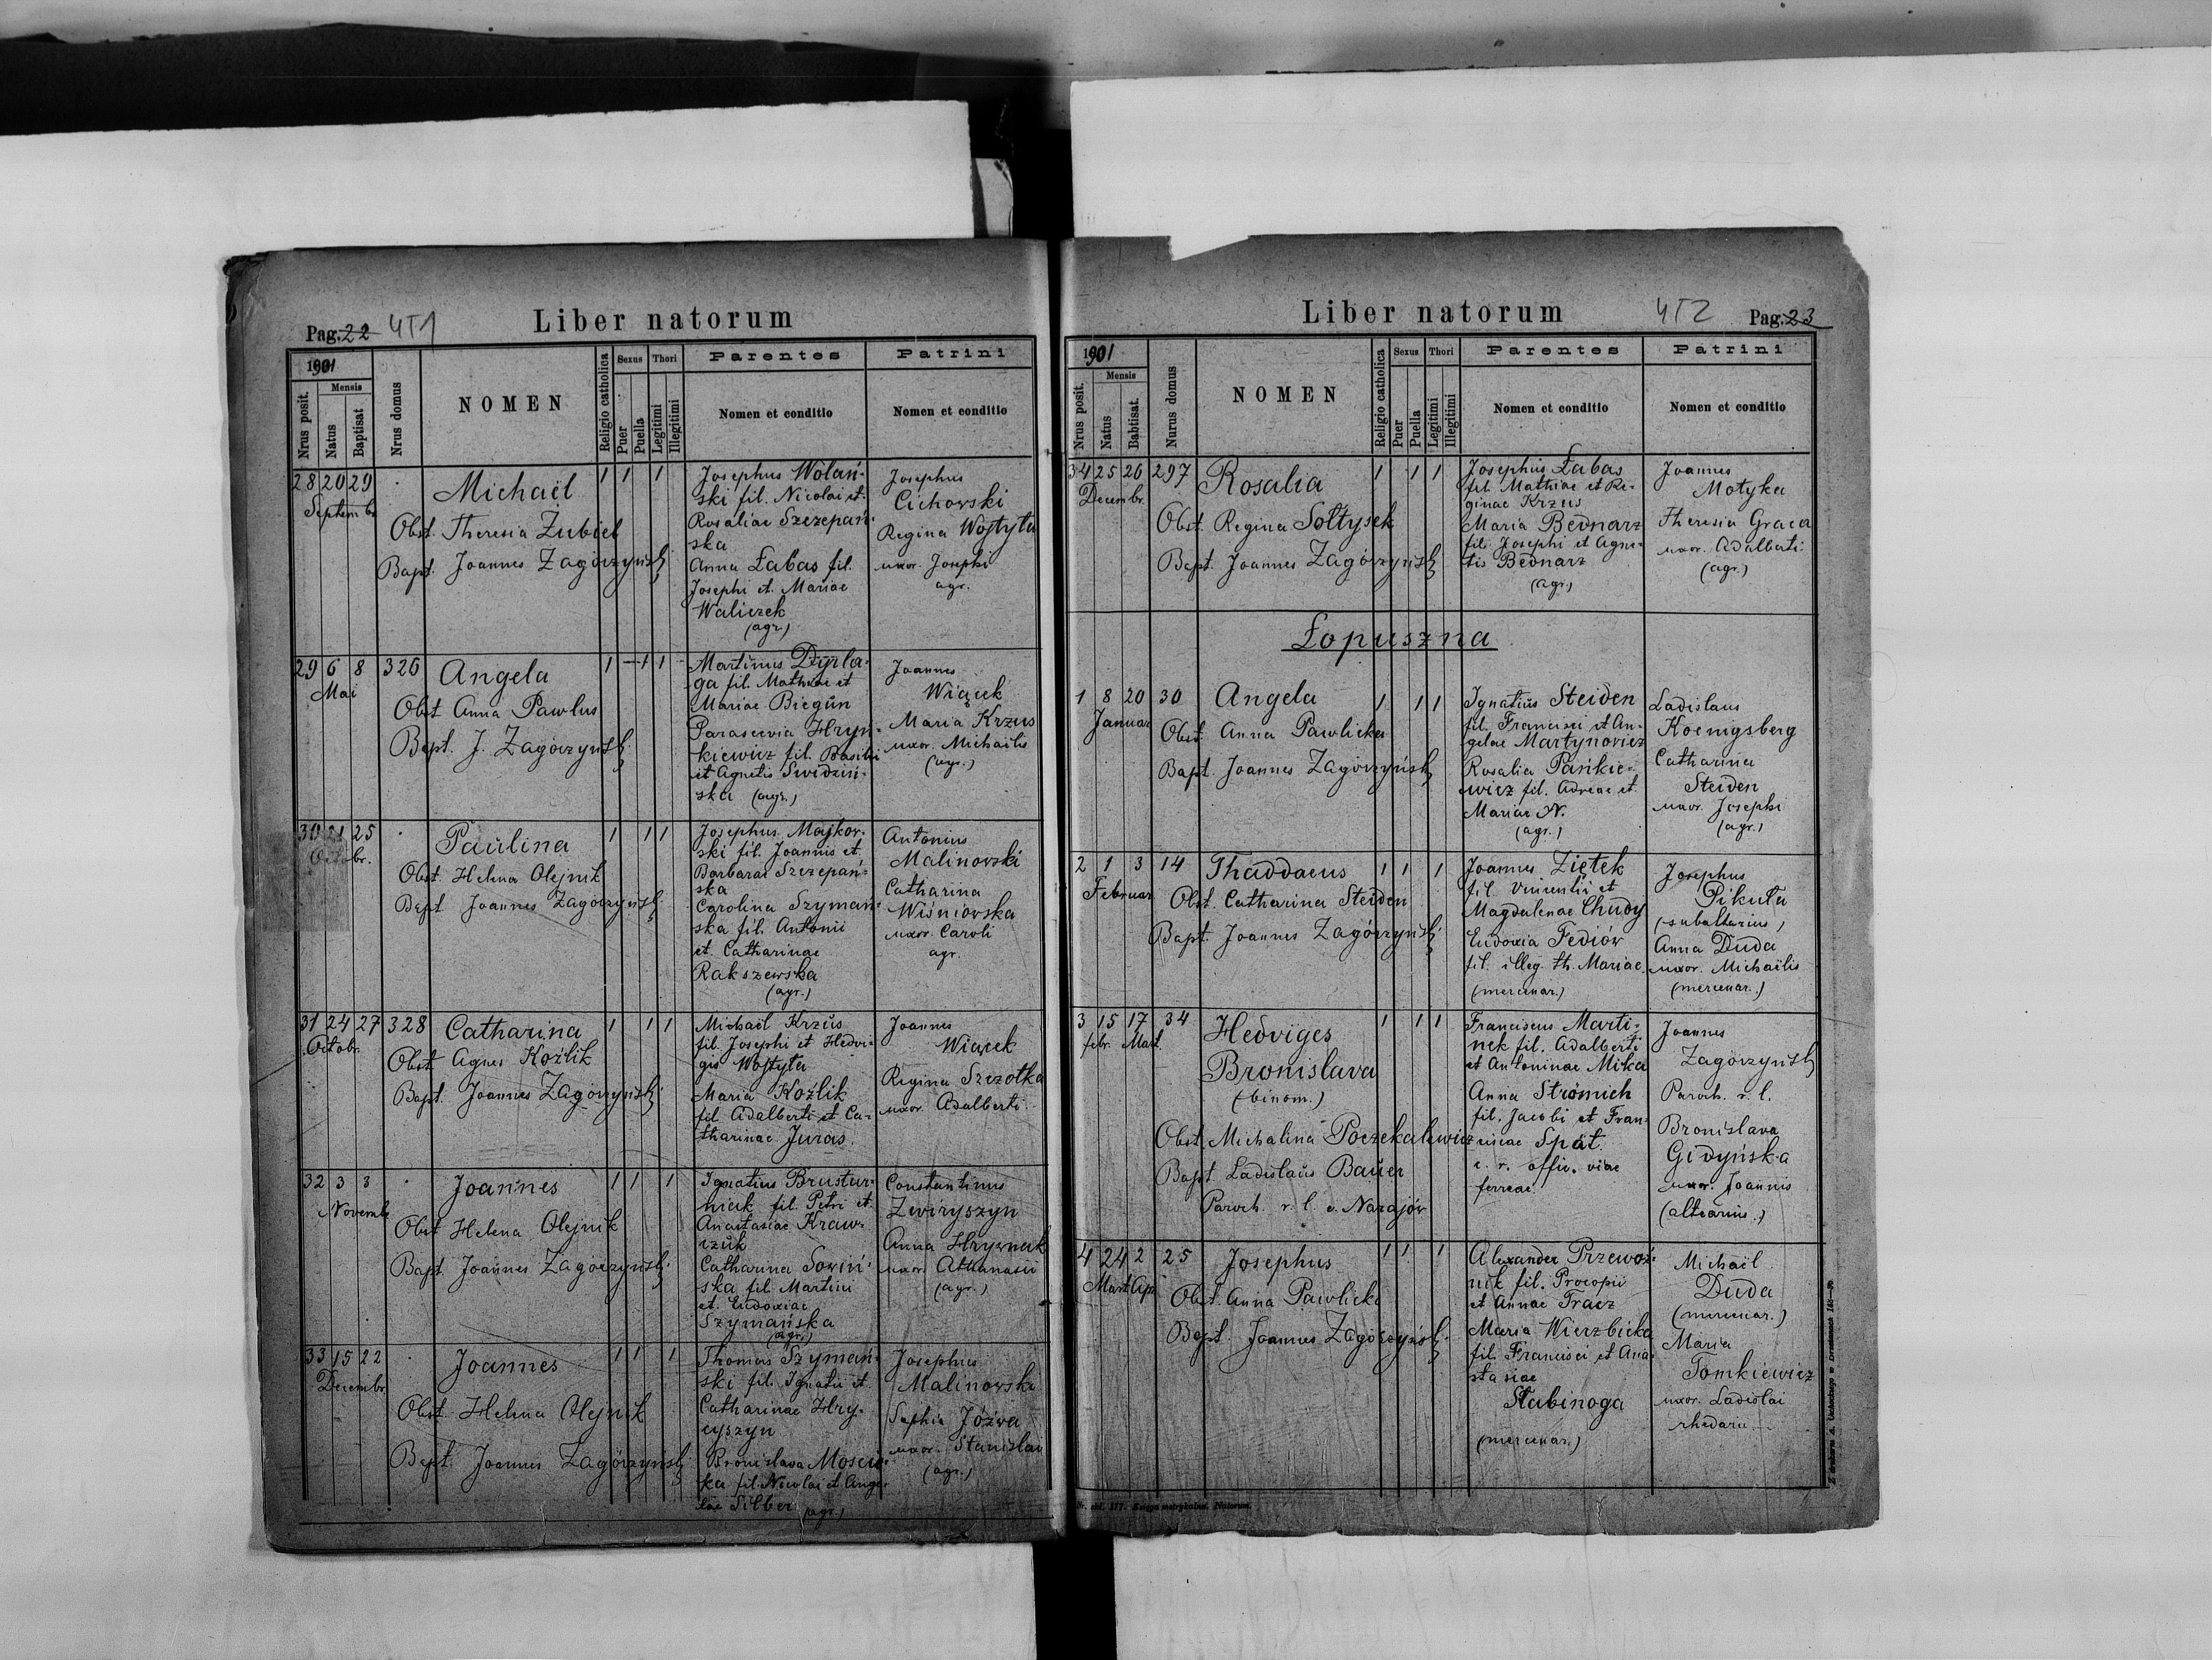 Pag. 22 451
Liber natorum
1901
Mensis
Nrus posit.
Natus
Baptisat
Nrus domus
NOMEN
Religio catholica
Sexus
Puer
Puella
Thori
Legitimi
Illegitimi
Parentes
Nomen et conditio
Patrini
Nomen et conditio
28 20 29
Septembr.
Michaël
Obst. Theresia Zubiel
Bapt. Joannes Zagórzyński
1 1 1
Josephus Wolań-
ski fil. Nicolai et
Rosaliae Szczepań-
ska
Anna Łabas fil.
Josephi et Mariae
Waliczek
(agr.)
Josephus
Cichowski
Regina Wojtyła
uxor. Josephi
agr.
29 6 8 326
Mai
Angela
Obst. Anna Pawlus
Bapt. J. Zagórzyński
1 – 1 1 –
Martinus Dyrla-
ga fil. Mathiae et
Mariae Biegun
Parascevia Hryń-
kiewicz fil. Basilii
et Agnetis Swidziń-
ska (agr.)
Joannes
Wiącek
Maria Krzus
uxor. Michaëlis
(agr.)
30 21 25
Octobr.
Paulina
Obst. Helena Olejnik
Bapt. Joannes Zagórzyński
1 1 1
Josephus Majkow-
ski fil. Joannis et
Barbarae Szczepań-
ska
Carolina Szymań-
ska fil. Antonii
et Catharinae
Rakszewska
(agr.)
Antonius
Malinowski
Catharina
Wiśniowska
uxor. Caroli
agr.
31 24 27 328
Octobr.
Catharina
Obst. Agnes Koźlik
Bapt. Joannes Zagórzyński
1 1 1
Michaël Krzus
fil. Josephi et Hedvi-
gis Wojtyła
Maria Koźlik
fil. Adalberti et Ca-
tharinae Juras.
Joannes
Wiącek
Regina Szczotka
uxor. Adalberti
32 3 3
Novemb.
Joannes
Obst. Helena Olejnik
Bapt. Joannes Zagórzyński
1 1 1
Ignatius Brustur-
niak fil. Petri et
Anastasiae Kraw-
czuk
Catharina Sowiń-
ska fil. Martini
et Eudoxiae
Szymańska
(agr.)
Constantinus
Zwiryszyn
Anna Hrywnak
uxor. Athanasii
(agr.)
33 15 22
Decembr.
Joannes
Obst. Helena Olejnik
Bapt. Joannes Zagórzyński
1 1 1
Thomas Szymań-
ski fil. Ignatii et
Catharinae Hry-
cyszyn
Bronislava Mosciс-
ka fil. Nicolai et Ange-
lae Silber (agr.)
Josephus
Malinowski
Sophia Józwa
uxor. Stanislai
(agr.)
Liber natorum
452 Pag. 23
1901
Mensis
Nrus posit.
Natus
Babtisat.
Nurus domus
NOMEN
Religio catholica
Sexus
Puer
Puella
Thori
Legitimi
Illegitimi
Parentes
Nomen et conditio
Patrini
Nomen et conditio
34 25 26 297
Decembr.
Rosalia
Obst. Regina Sołtysek
Bapt. Joannes Zagórzyński
1 1 1
Josephus Łabas
fil. Mathiae et Re-
ginae Krzus
Maria Bednarz
fil. Josephi et Agne-
tis Bednarz
(agr.)
Joannes
Motyka
Theresia Graca
uxor. Adalberti
(agr.)
Łopuszna
1 8 20 30
Januar
Angela
Obst. Anna Pawlicka
Bapt. Joannes Zagórzyński
1 1 1
Ignatius Steiden
fil. Francisci et An-
gelae Martynowicz
Rosalia Pańkie-
wicz fil. Adreae et
Mariae N.
(agr.)
Ladislaus
Koenigsberg
Catharina
Steiden
uxor. Josephi
(agr.)
2 1 3 14
Februar
Thaddaeus
Obst. Catharina Steiden
Bapt. Joannes Zagórzyński
1 1 1
Joannes Ziętek
fil. Vincentii et
Magdalenae Chudy
Eudoxia Fediów
fil. illeg. th. Mariae
(mercenar.)
Josephus
Pikuła
(subaltarius)
Anna Duda
uxor. Michaëlis
(mercenar.)
3 15 17 34
febr. Mart.
Hedviges
Bronislava
(binom.)
Obst. Michalina Poczekalewicz
Bapt. Ladislaus Bauer
Paroch. r. l. e. Narajów
1 1 1
Franciscus Marti-
nek fil. Adalberti
et Antoninae Mika
Anna Strömich
fil. Jacobi et Fran-
ciscae Spät.
c. r. offic. viae
ferreae
Joannes
Zagórzyński
Paroch. r. l.
Bronislava
Gidyńska
uxor. Joannis
(altearius.)
4 24 2 25
Mart Apr.
Josephus
Obst. Anna Pawlicka
Bapt. Joannes Zagórzyński
1 1 1
Alexander Przewoź-
nik fil. Procopii
et Annae Tracz
Maria Wierzbicka
fil. Francisci et Ana-
stasiae
Słabinoga
(mercenar.)
Michaël
Duda
(mercenar.)
Maria
Tomkiewicz
uxor. Ladislai
rhedarii